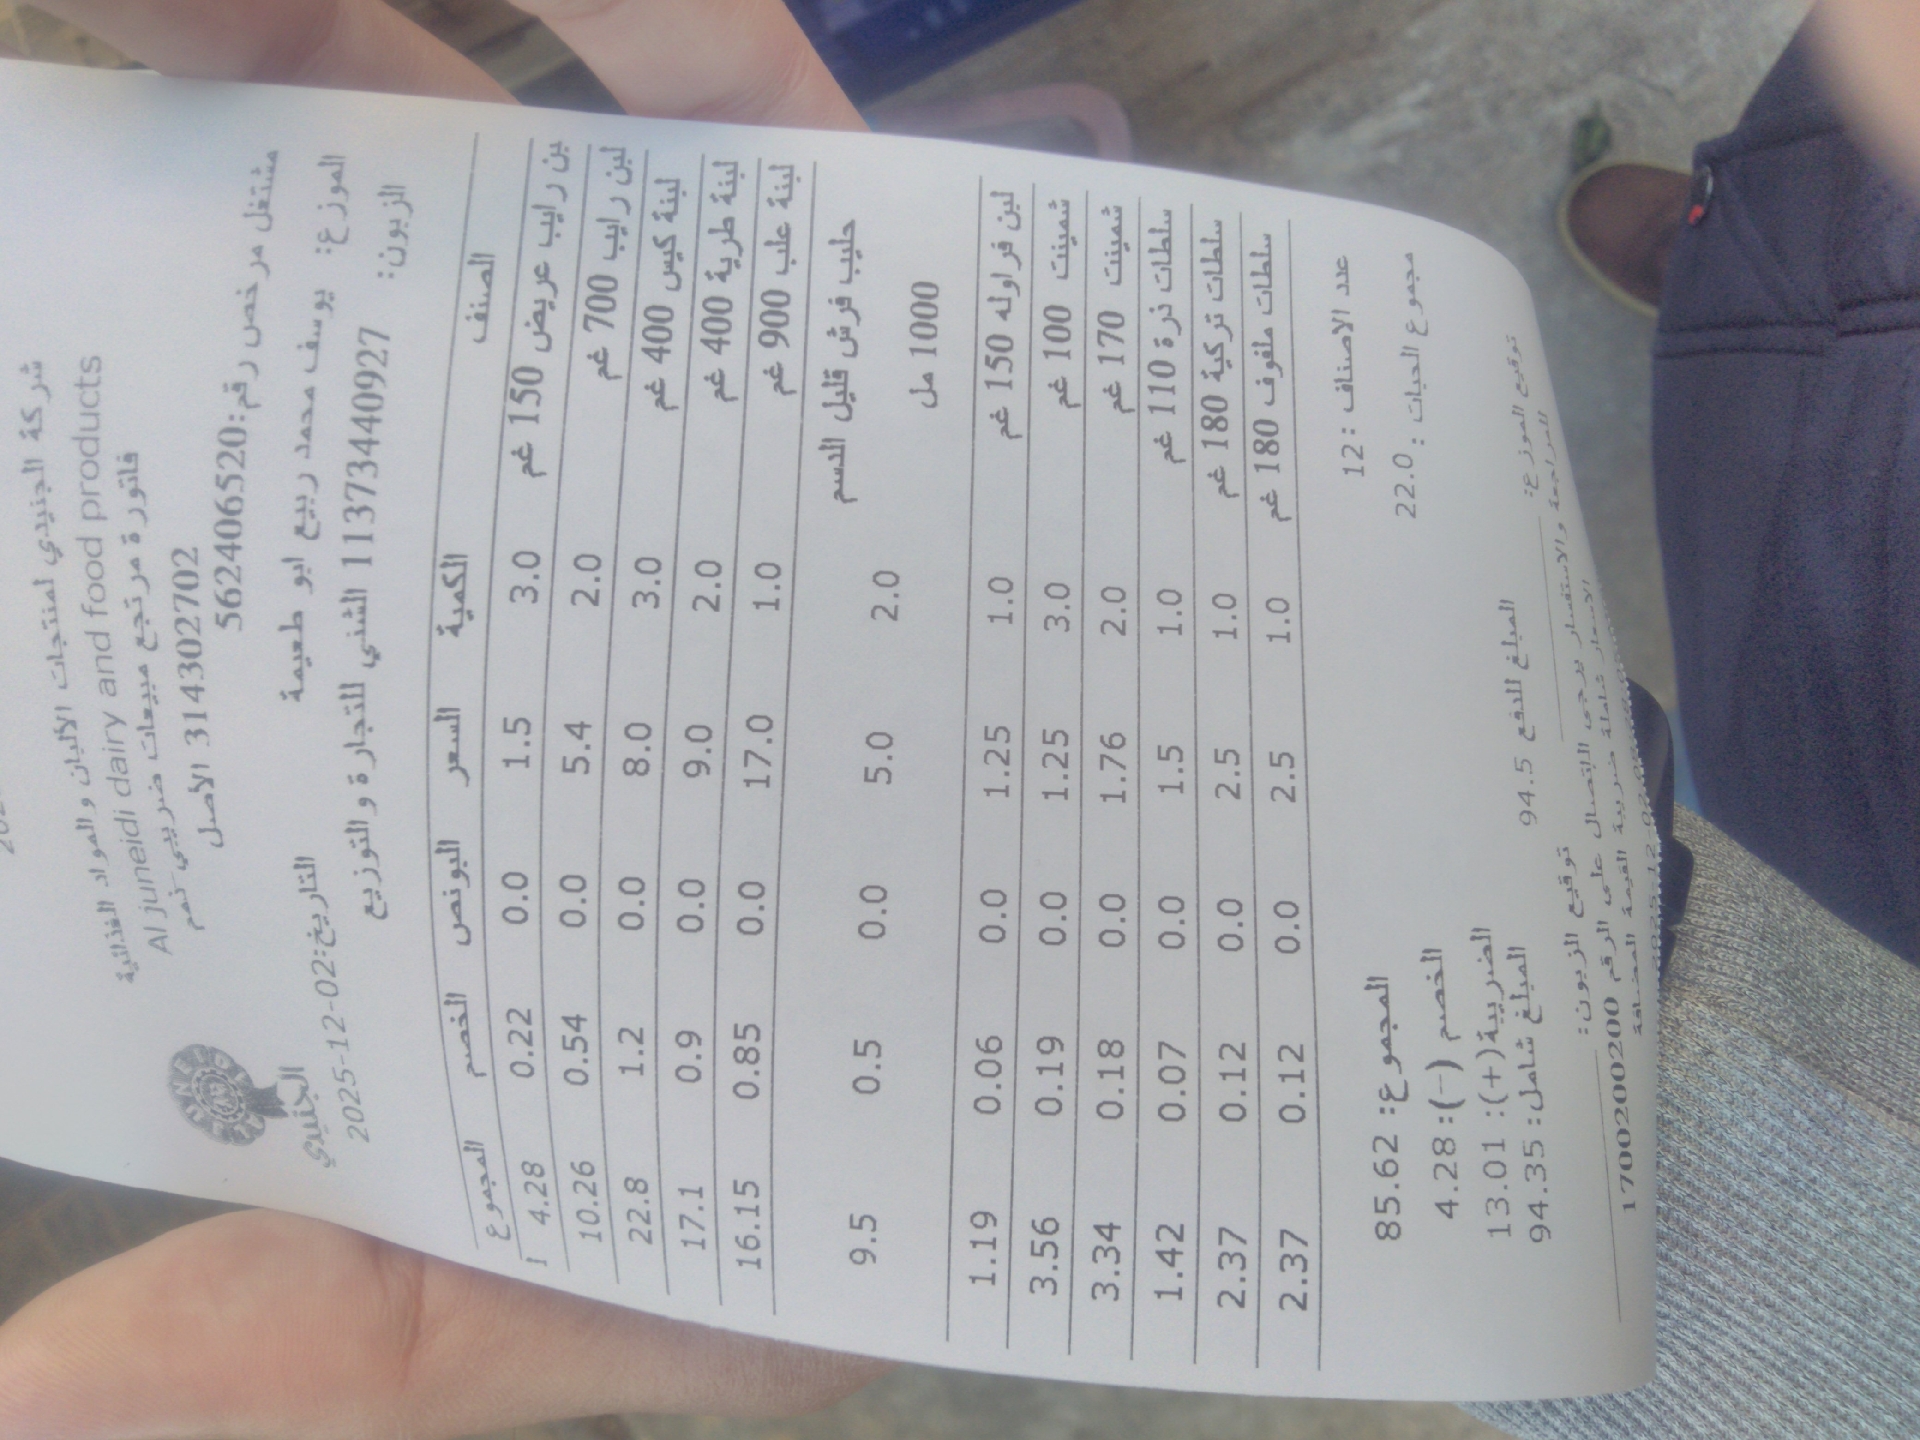 شركة الجنيدي لمنتجات الألبان والمواد الغذائية
Al juneidi dairy and food products
فاتورة مرتجع مبيعات ضريبي نهم
314302702 الاصل
مشتغل مرخص رقم:562406520
الجنيدي
الموزع: يوسف محمد ربيع ابو طعيمة
التاريخ:02-12-2025
الزبون: 11373440927 الشني للتجارة والتوزيع
الصنف الكمية السعر البونص الخصم المجموع
بن رايب عريض 150 غم 3.0 1.5 0.0 0.22 4.28
لبن رايب 700 غم 2.0 5.4 0.0 0.54 10.26
لبنة كيس 400 غم 3.0 8.0 0.0 1.2 22.8
لبنة طرية 400 غم 2.0 9.0 0.0 0.9 17.1
لبنة علب 900 غم 1.0 17.0 0.0 0.85 16.15
حليب فرش قليل الدسم 2.0 5.0 0.0 0.5 9.5
1000 مل
لبن فراوله 150 غم 1.0 1.25 0.0 0.06 1.19
شمينت 100 غم 3.0 1.25 0.0 0.19 3.56
شمينت 170 غم 2.0 1.76 0.0 0.18 3.34
سلطات ذرة 110 غم 1.0 1.5 0.0 0.07 1.42
سلطات تركية 180 غم 1.0 2.5 0.0 0.12 2.37
سلطات ملفوف 180 غم 1.0 2.5 0.0 0.12 2.37
عدد الاصناف : 12 المجموع: 85.62
مجموع الحبات : 22.0 الخصم (-): 4.28
الضريبة(+): 13.01
المبلغ للدفع 94.5 المبلغ شامل: 94.35
توقيع الموزع: توقيع الزبون:
للمراجعة والاستفسار يرجى الاتصال على الرقم 1700200200
الاسعار شاملة ضريبة القيمة المضافة